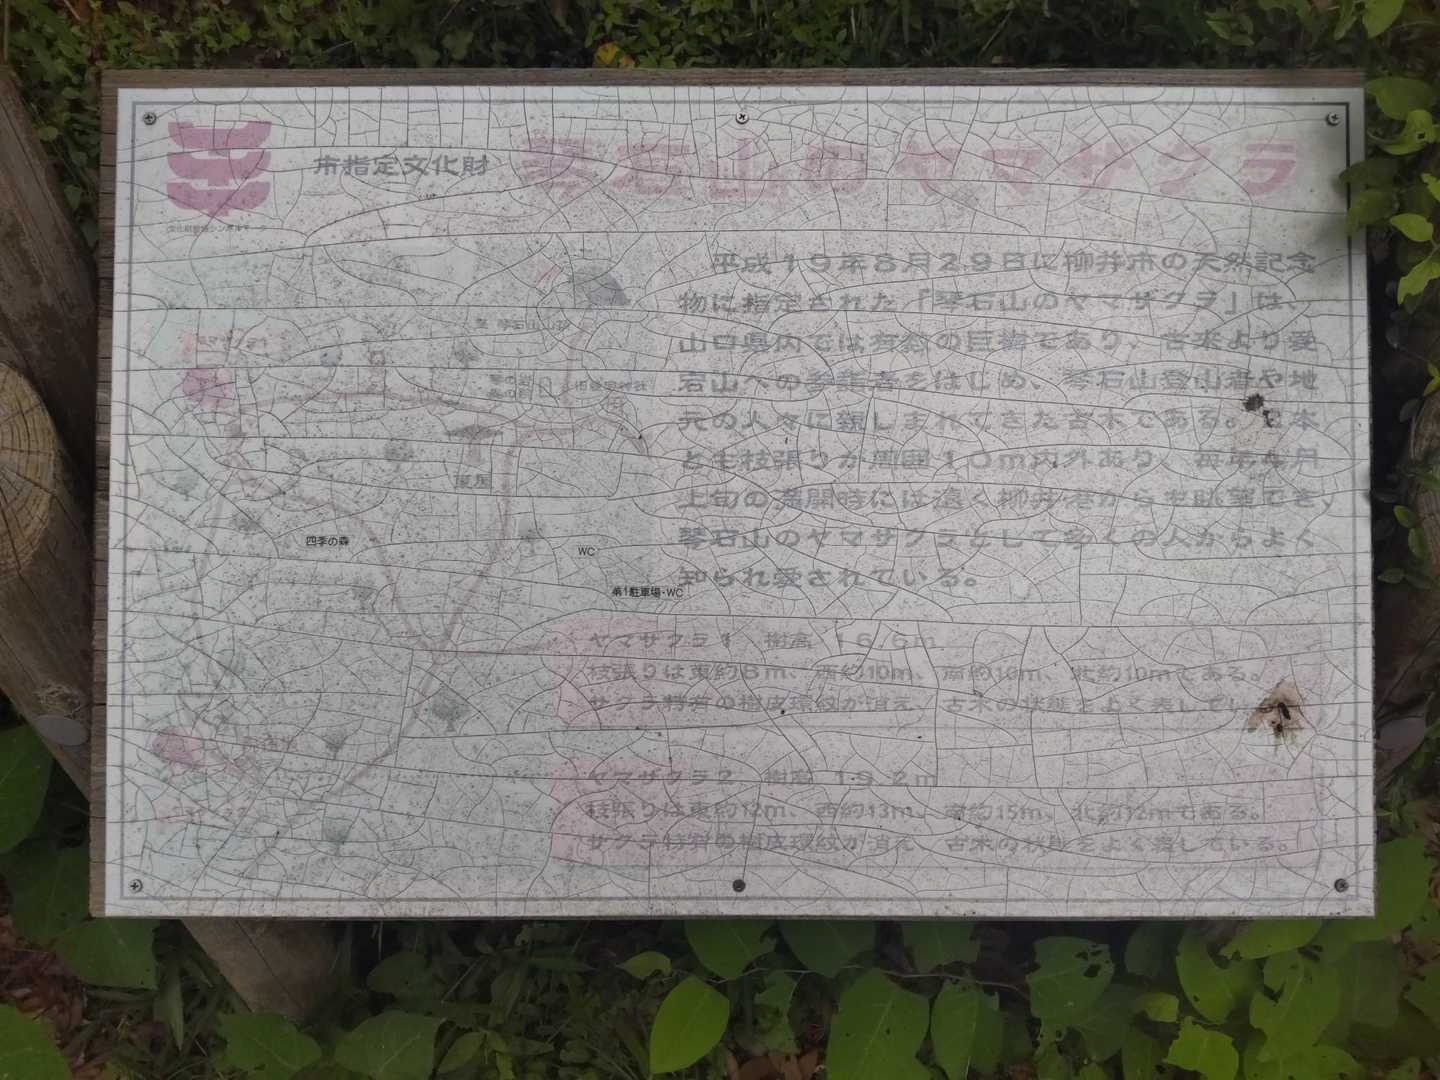 市指定文化財 琴石山のヤマザクラ
文化財愛護シンボルマーク
平成19年8月29日に柳井市の天然記念
物に指定された「琴石山のヤマザクラ」は、
山口県内では有数の巨樹であり、古来より愛
宕山への参詣者をはじめ、琴石山登山者や地
元の人々に親しまれてきた古木である。2本
とも枝張りが周囲10m内外あり、毎年4月
上旬の満開時には遠く柳井港からも眺望でき、
琴石山のヤマザクラとして多くの人からよく
知られ愛されている。
四季の森
WC
第1駐車場・WC
ヤマザクラ1 樹高 16.6m
枝張りは東約8m、西約10m、南約10m、北約10mである。
サクラ特有の樹皮環紋が消え、古木の状態をよく表してい
ヤマザクラ2 樹高 19.2m
枝張りは東約12m、西約13m、南約15m、北約12mである。
サクラ特有の樹皮環紋が消え、古木の状態をよく表している。